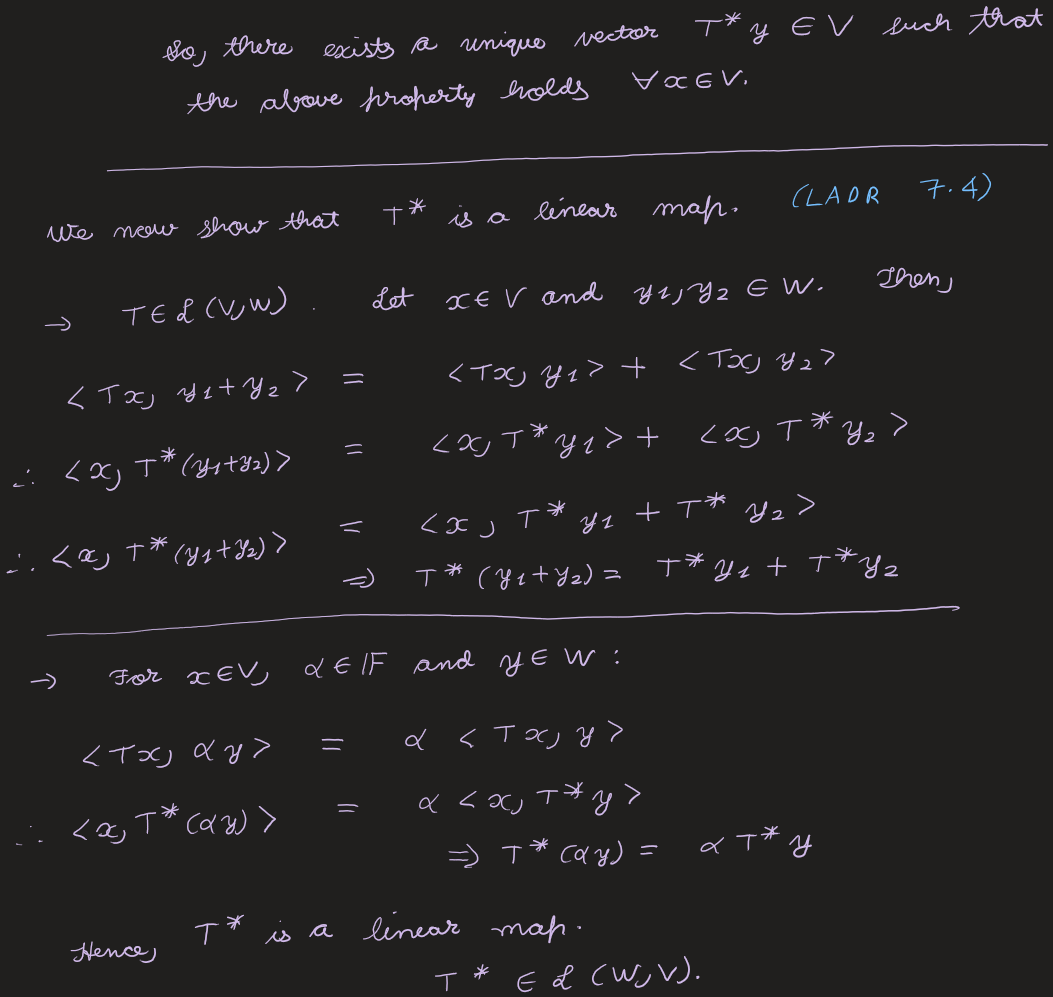 So, there exists a unique vector T* y ∈ V such that
the above property holds ∀ x ∈ V.
We now show that T* is a linear map. (LADR 7.4)
→ T ∈ ℒ (V,W). Let x ∈ V and y1, y2 ∈ W. Then,
< Tx, y1 + y2 > = < Tx, y1 > + < Tx, y2 >
∴ < x, T* (y1+y2) > = < x, T* y1 > + < x, T* y2 >
∴ < x, T* (y1+y2) > = < x, T* y1 + T* y2 >
⇒ T* (y1+y2) = T* y1 + T* y2
→ For x ∈ V, α ∈ 𝔽 and y ∈ W :
< Tx, α y > = α < Tx, y >
∴ < x, T* (αy) > = α < x, T* y >
⇒ T* (αy) = α T* y
Hence, T* is a linear map.
T* ∈ ℒ (W,V).